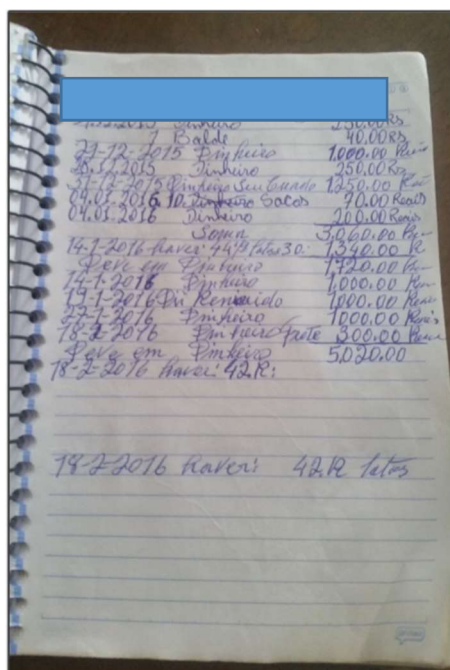 2015 Dinheiro 250.00 Rs
1 Balde 40.00 Rs
21-12-2015 Dinheiro 1.000.00 Reais
28.12.2015 Dinheiro 250.00 Rs
31-12-2015 Dinheiro 1250.00 Reais
04.01.2016 10 Sacos 70.00 Reais
04.01.2016 Dinheiro 200.00 Reais
Soma 3,060.00
14-1-2016 haver: 44 latas 30. 1,340.00 R
Deve em Dinheiro 1,720.00
14-1-2016 Dinheiro 1,000.00
19-1-2016 1000.00 Reais
22-1-2016 Dinheiro 1000.00 Reais
18-2-2016 Dinheiro frete 300.00
Deve em Dinheiro 5,020.00
18-2-2016 haver: 42.
18-2-2016 haver: 42. latas